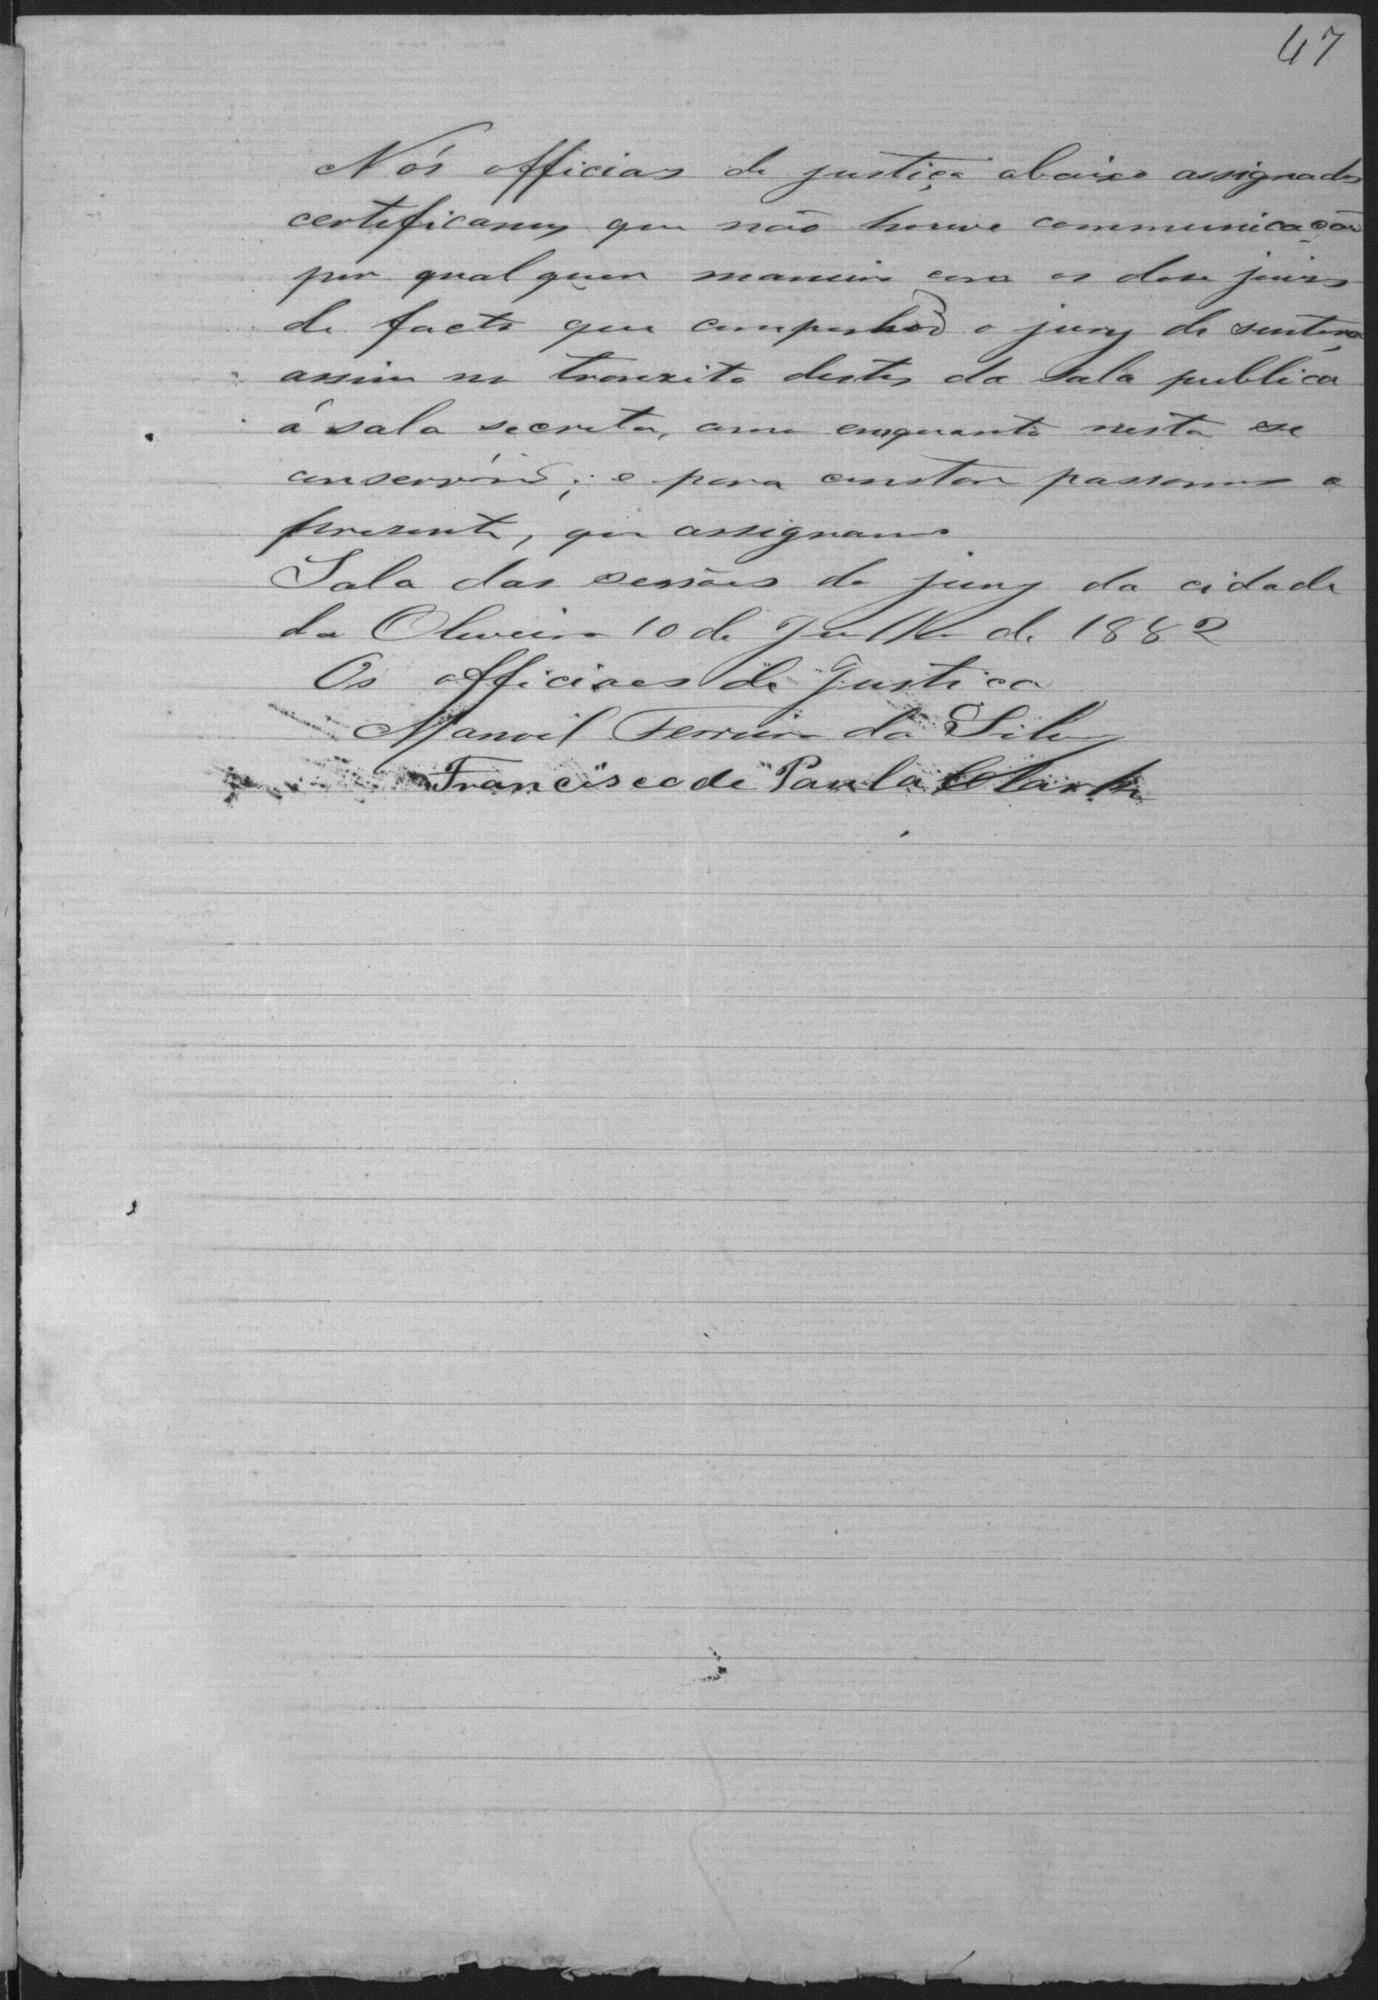 47
Nós officiaes de justiça abaixo assignados
certificamos que não houve communicação
por qualquer maneira com os doze juizes
de facto que o jury de sentença
assim no tranzito destes da sala publica
á sala secreta, como emquanto nesta se
conservárão; e para constar passamos o
prezente, que assignamos
Sala das sessões do jury da cidade
da Oliveira 10 de Julho de 1882
Os officiaes de Justiça
Manoel Ferreira da Silva
Francisco de Paula